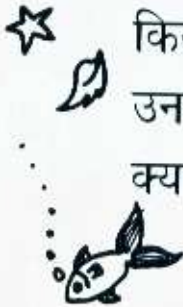 कि
उन
क्य